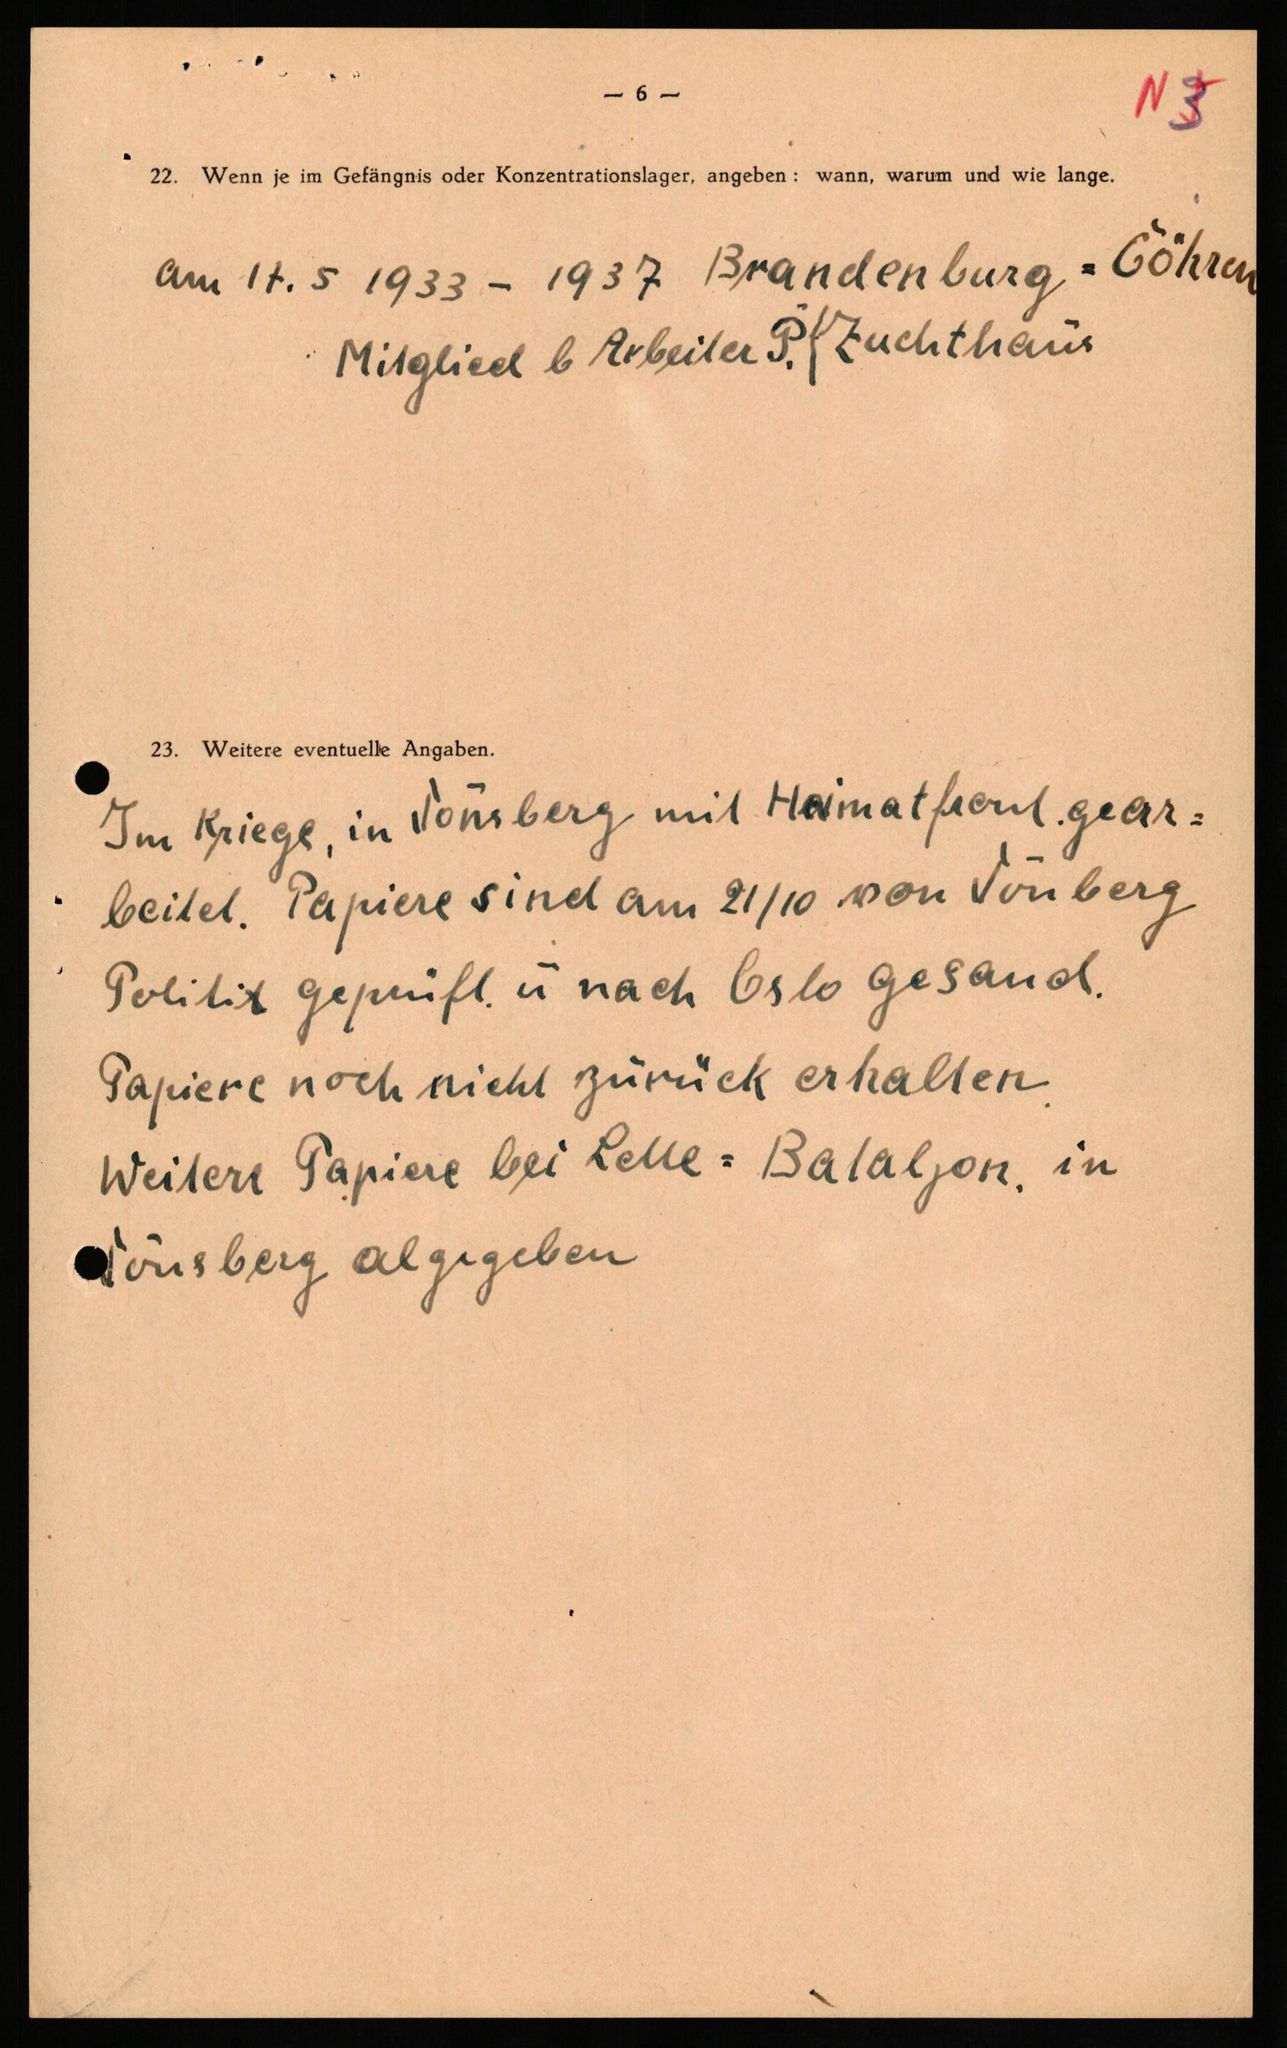 — 6 —
N 3
22. Wenn je im Gefängnis oder Konzentrationslager, angeben: wann, warum und wie lange.
am 17. 5 1933 – 1937 Brandenburg = Göhren
Mitglied b Arbeiter P. { Zuchthaus
23. Weitere eventuelle Angaben.
Im Kriege, in Tönsberg mit Heimatfront. gear=
beitet. Papiere sind am 21/10 von Tönberg
Politix geprüft. ü nach Oslo gesand.
Papiere noch nicht zürück erhalten.
Weitere Papiere bei Lette = Bataljon. in
Tönsberg abgegeben